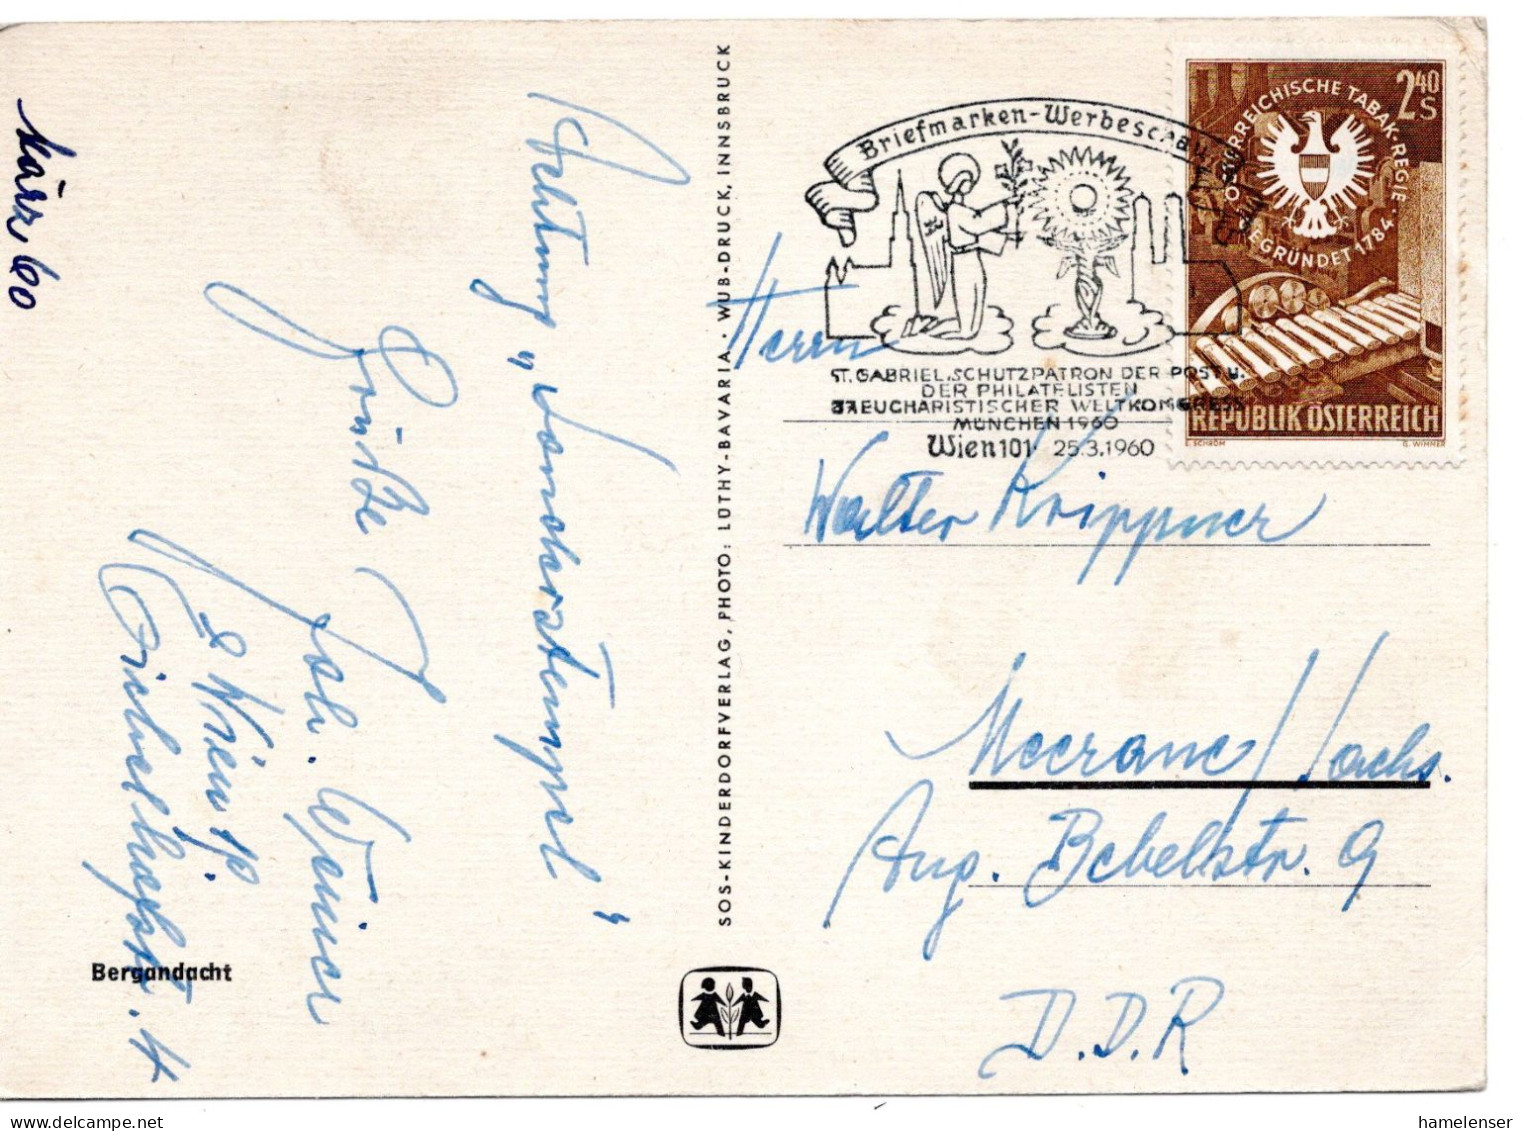 März 60
Achtung „Sonderstempel"
Grüße
Joh. Weiner
Wien
Bergandacht
SOS-KINDERDORFVERLAG, PHOTO: LÜTHY-BAVARIA · WUB-DRUCK, INNSBRUCK
Briefmarken-Werbeschau
ST. GABRIEL, SCHUTZPATRON DER POST U.
DER PHILATELISTEN
37. EUCHARISTISCHER WELTKONGRESS
MÜNCHEN 1960
Wien 101 25.3.1960
2 40 S
ÖSTERREICHISCHE TABAK-REGIE
GEGRÜNDET 1784
REPUBLIK ÖSTERREICH
G. WIMMER
Herrn
Walter Krippner
Meerane / Sachs.
Aug. Bebelstr. 9
D.D.R
hamelenser